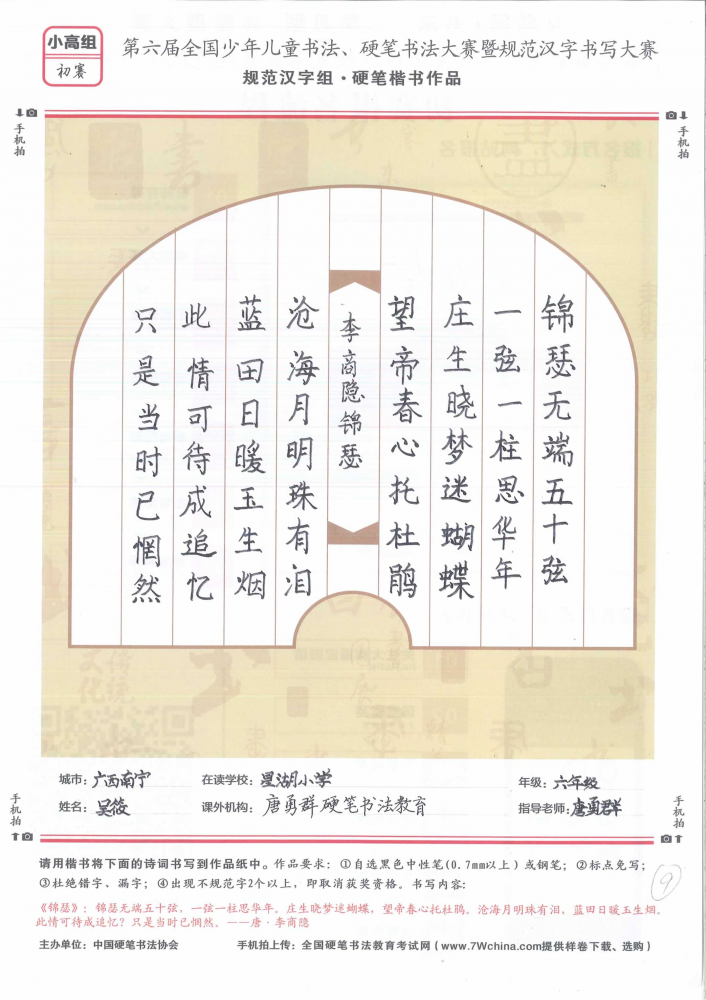 小高组
初赛
第六届全国少年儿童书法、硬笔书法大赛暨规范汉字书写大赛
规范汉字组·硬笔楷书作品
手机拍
手机拍
锦瑟无端五十弦
一弦一柱思华年
庄生晓梦迷蝴蝶
望帝春心托杜鹃
李商隐锦瑟
沧海月明珠有泪
蓝田日暖玉生烟
此情可待成追忆
只是当时已惘然
城市：广西南宁
在读学校：星湖小学
年级：六年级
姓名：吴筱
课外机构：唐勇群硬笔书法教育
指导老师：唐勇群
手机拍
手机拍
请用楷书将下面的诗词书写到作品纸中。作品要求：①自选黑色中性笔(0.7mm以上)或钢笔；②标点免写；
③杜绝错字、漏字；④出现不规范字2个以上，即取消获奖资格。书写内容：
9
《锦瑟》：锦瑟无端五十弦，一弦一柱思华年。庄生晓梦迷蝴蝶，望帝春心托杜鹃。沧海月明珠有泪，蓝田日暖玉生烟。
此情可待成追忆？只是当时已惘然。——唐·李商隐
主办单位：中国硬笔书法协会
手机拍上传：全国硬笔书法教育考试网(www.7Wchina.com提供样卷下载、选购)